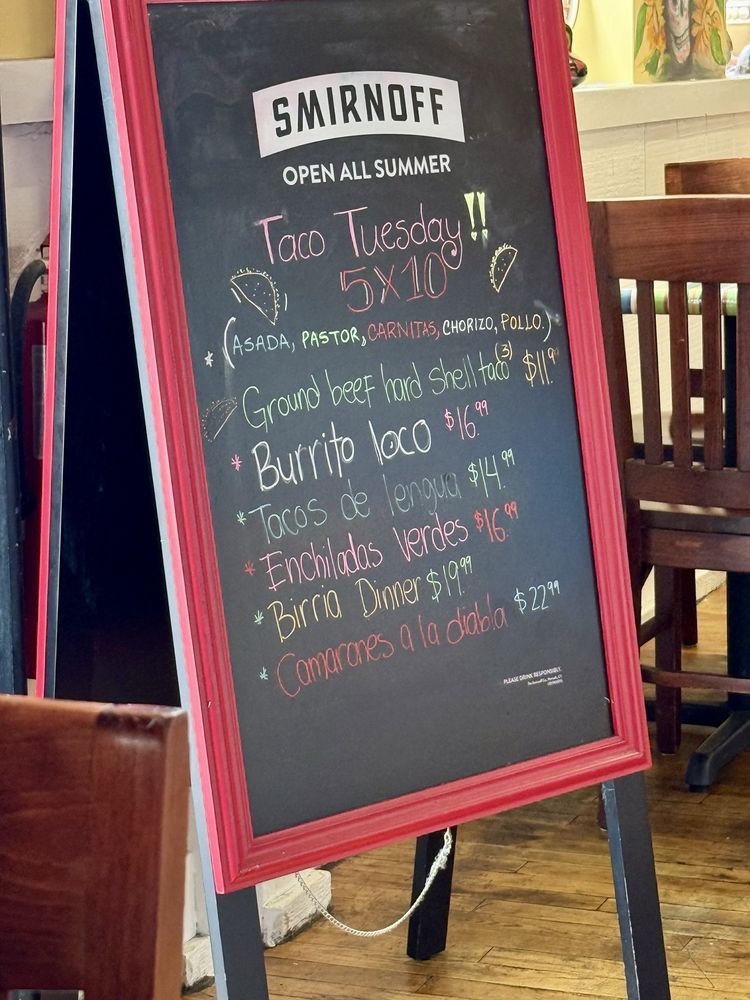 SMIRNOFF
OPEN ALL SUMMER
Taco Tuesday!!
5X10
(ASADA, PASTOR, CARNITAS, CHORIZO, POLLO.)
* Ground beef hard shell taco (3) $11.99
* Burrito loco $16.99
* Tacos de lengua $14.99
* Enchiladas verdes $16.99
* Birria Dinner $19.99
* Camarones a la diabla $22.99
PLEASE DRINK RESPONSIBLY.